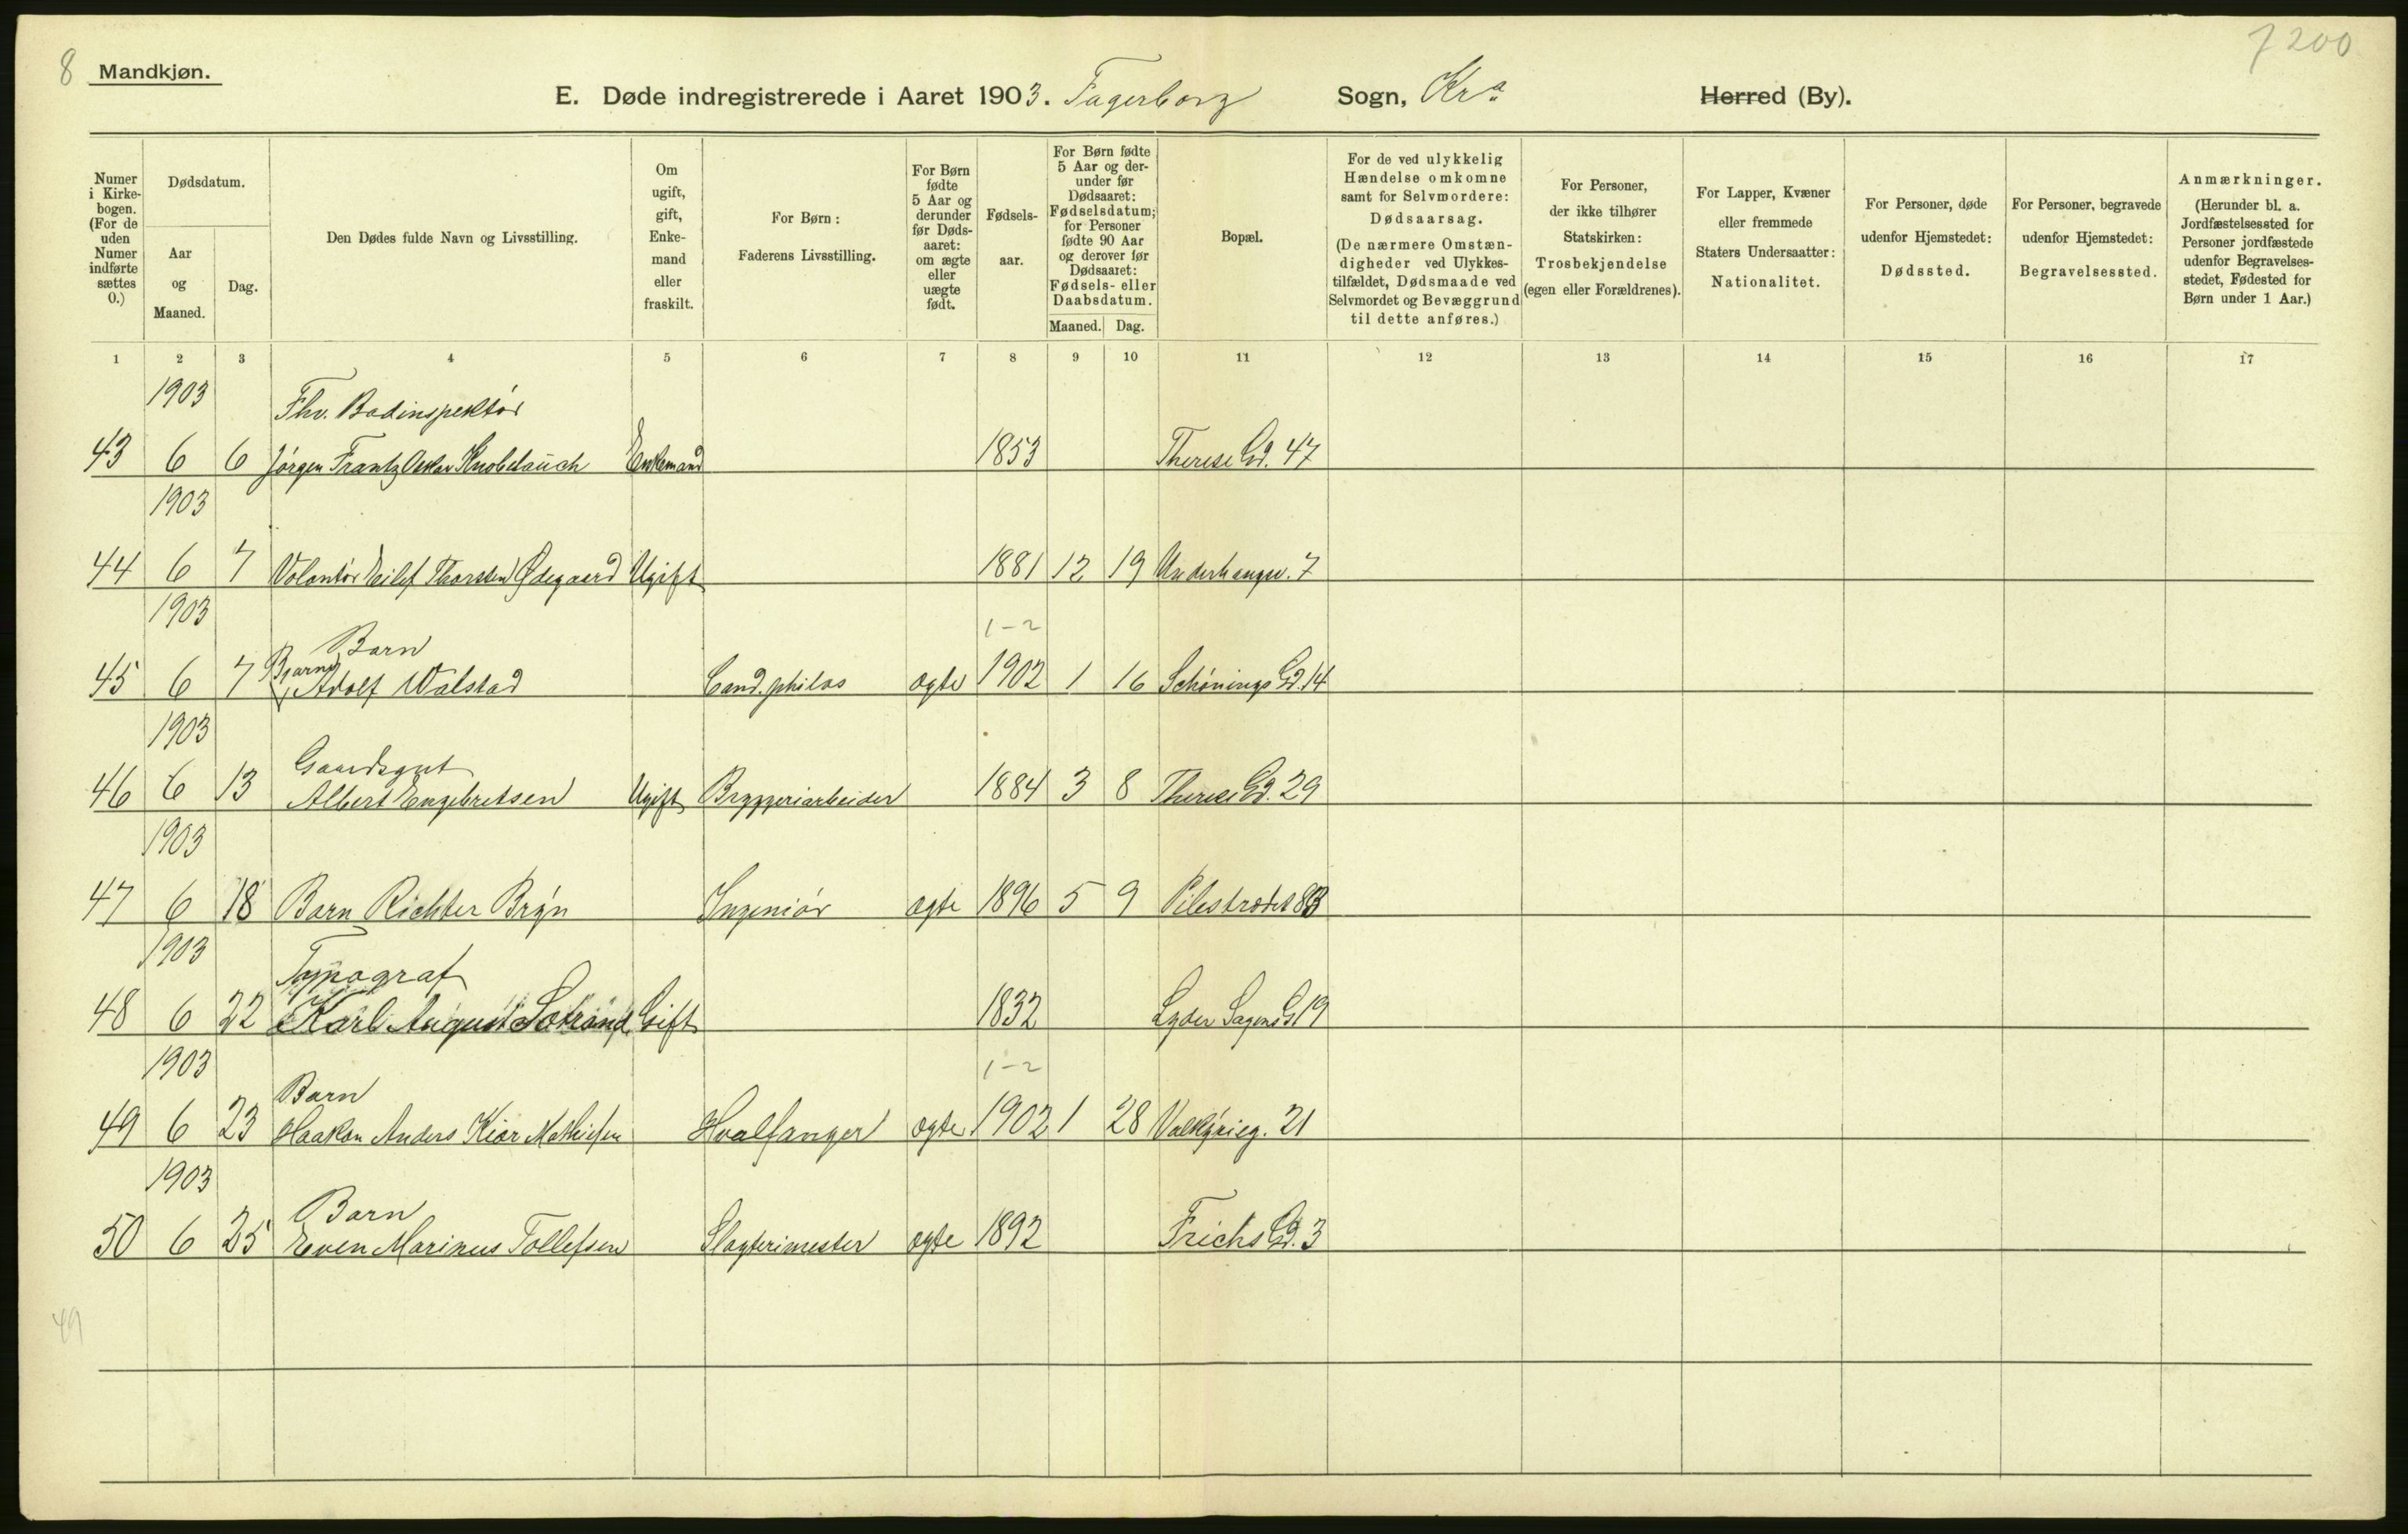 8 Mandkjøn. 7 200
E. Døde indregistrerede i Aaret 1903. Fagerborg Sogn, Kra Herred (By).
Numer i Kirkebogen. (For de uden Numer indførte sættes 0.)
Dødsdatum.
Aar og Maaned.
Dag.
Den Dødes fulde Navn og Livsstilling.
Om ugift, gift, Enkemand eller fraskilt.
For Børn: Faderens Livsstilling.
For Børn fødte 5 Aar og derunder før Dødsaaret: om ægte eller uægte født.
Fødselsaar.
For Børn fødte 5 Aar og derunder før Dødsaaret: Fødselsdatum; for Personer fødte 90 Aar og derover før Dødsaaret: Fødsels- eller Daabsdatum.
Maaned. Dag.
Bopæl.
For de ved ulykkelig Hændelse omkomne samt for Selvmordere: Dødsaarsag. (De nærmere Omstændigheder ved Ulykkestilfældet, Dødsmaade ved Selvmordet og Bevæggrund til dette anføres.)
For Personer, der ikke tilhører Statskirken: Trosbekjendelse (egen eller Forældrenes).
For Lapper, Kvæner eller fremmede Staters Undersaatter: Nationalitet.
For Personer, døde udenfor Hjemstedet: Dødssted.
For Personer, begravede udenfor Hjemstedet: Begravelsessted.
Anmærkninger. (Herunder bl. a. Jordfæstelsessted for Personer jordfæstede udenfor Begravelsesstedet, Fødested for Børn under 1 Aar.)
1 2 3 4 5 6 7 8 9 10 11 12 13 14 15 16 17
1903 Fhv. Badinspektør
43 6 6 Jørgen Frantz Oskar Knobelauch Enkemand 1853 Therese Gd. 47
1903
44 6 7 Volontør Eilef Thorsten Ødegaard Ugift 1881 12 19 Underhaugsv. 7
1903 Barn 1-2
45 6 7 Bjarne Adolf Walstad Cand. philos ægte 1902 1 16 Schønings Gd. 14
1903 Gaardsgut
46 6 13 Albert Engebretsen Ugift Bryggeriarbeider 1884 3 8 Therese Gd. 29
1903
47 6 18 Barn Richter Brÿn Ingeniør ægte 1896 5 9 Pilestrædet 83
1903 Typograf
48 6 22 Karl August Gift 1832 Lyder Sagens G 19
1903 Barn 1-2
49 6 23 Haakon Anders Kiær Mathiesen Hvalfanger ægte 1902 1 28 21
1903 Barn
50 6 25 Even Marinus Tollefsen Slagterimester ægte 1892 Frichs Gd. 3
49